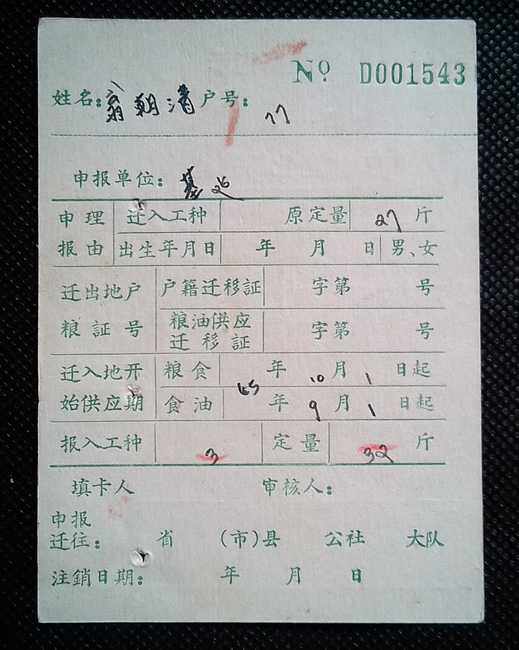 № D001543
姓名:翁朝清 户号: 77
申报单位:基
申理 迁入工种 原定量 27 斤
报由 出生年月日 年 月 日 男、女
迁出地户 户籍迁移証 字第 号
粮証号 粮油供应迁移証 字第 号
迁入地开 粮食 65 年 10 月 1 日起
始供应期 食油 年 9 月 1 日起
报入工种 3 定量 32 斤
填卡人 审核人:
申报
迁往: 省 (市)县 公社 大队
注銷日期: 年 月 日